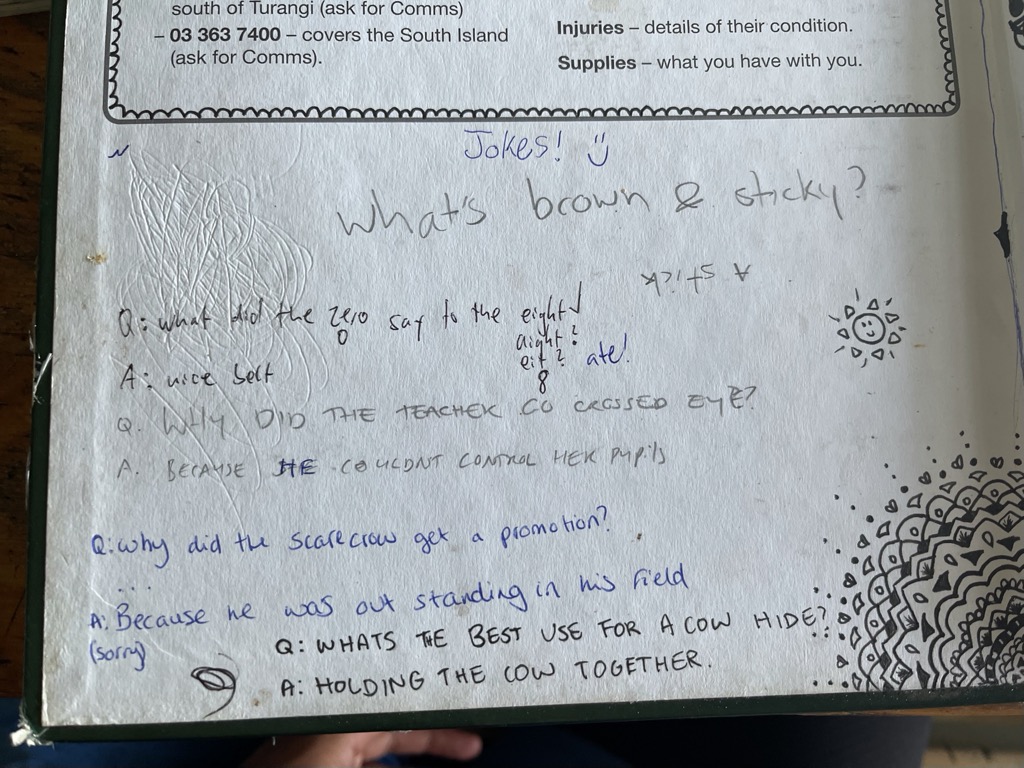 south of Turangi (ask for Comms)
– 03 363 7400 – covers the South Island
(ask for Comms).
Injuries – details of their condition.
Supplies – what you have with you.
Jokes!
What's brown & sticky?
A stick
Q: what did the zero say to the eight
0
aight?
eit? ate!
8
A: nice belt
Q. WHY DID THE TEACHER GO CROSSED EYE?
A. BECAUSE HE COULDNT CONTROL HER PUPILS
Q: why did the scarecrow get a promotion?
...
A: Because he was out standing in his field
(sorry)
Q: WHATS THE BEST USE FOR A COW HIDE?
A: HOLDING THE COW TOGETHER.